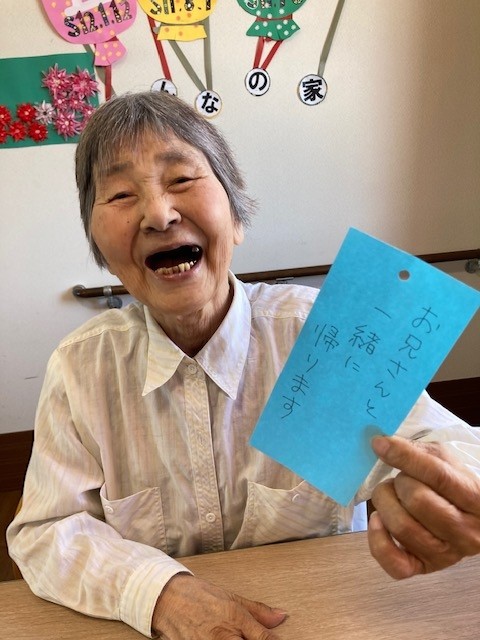 S12.1.12
S11.8.1
んなの家
お兄さんと
一緒に
帰ります